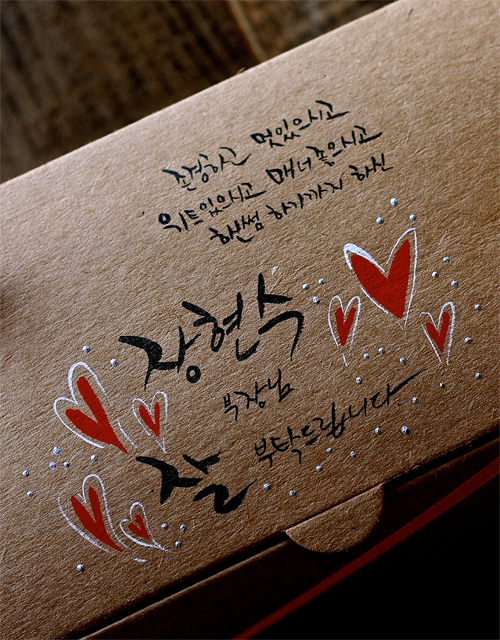 존경하고 멋있으시고
위트있으시고 매너좋으시고
핸썸 하기까지 하신
장현수
부장님
잘 부탁드립니다